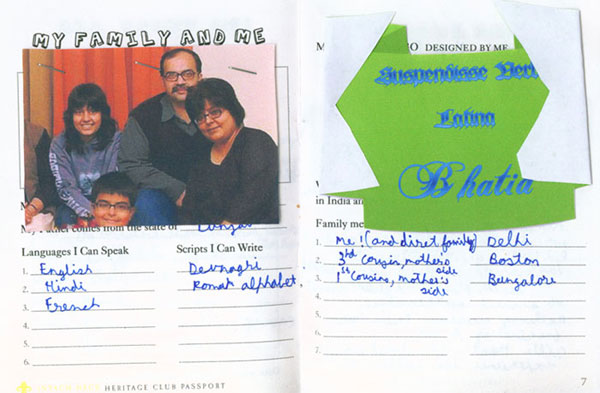 MY FAMILY AND ME
comes from the state of Punjab
Languages I Can Speak
Scripts I Can Write
1. English
Devnagri
2. Hindi
Roman alphabet
3. French
4.
5.
6.
HERITAGE CLUB PASSPORT
DESIGNED BY ME
Suspendisse
Latina
Bhatia
in India
Family
1. Me! (and diret family)
Delhi
2. 3rd cousin, mother's side
Boston
3. 1st cousins, mother's side
Bungalore
4.
5.
6.
7.
7